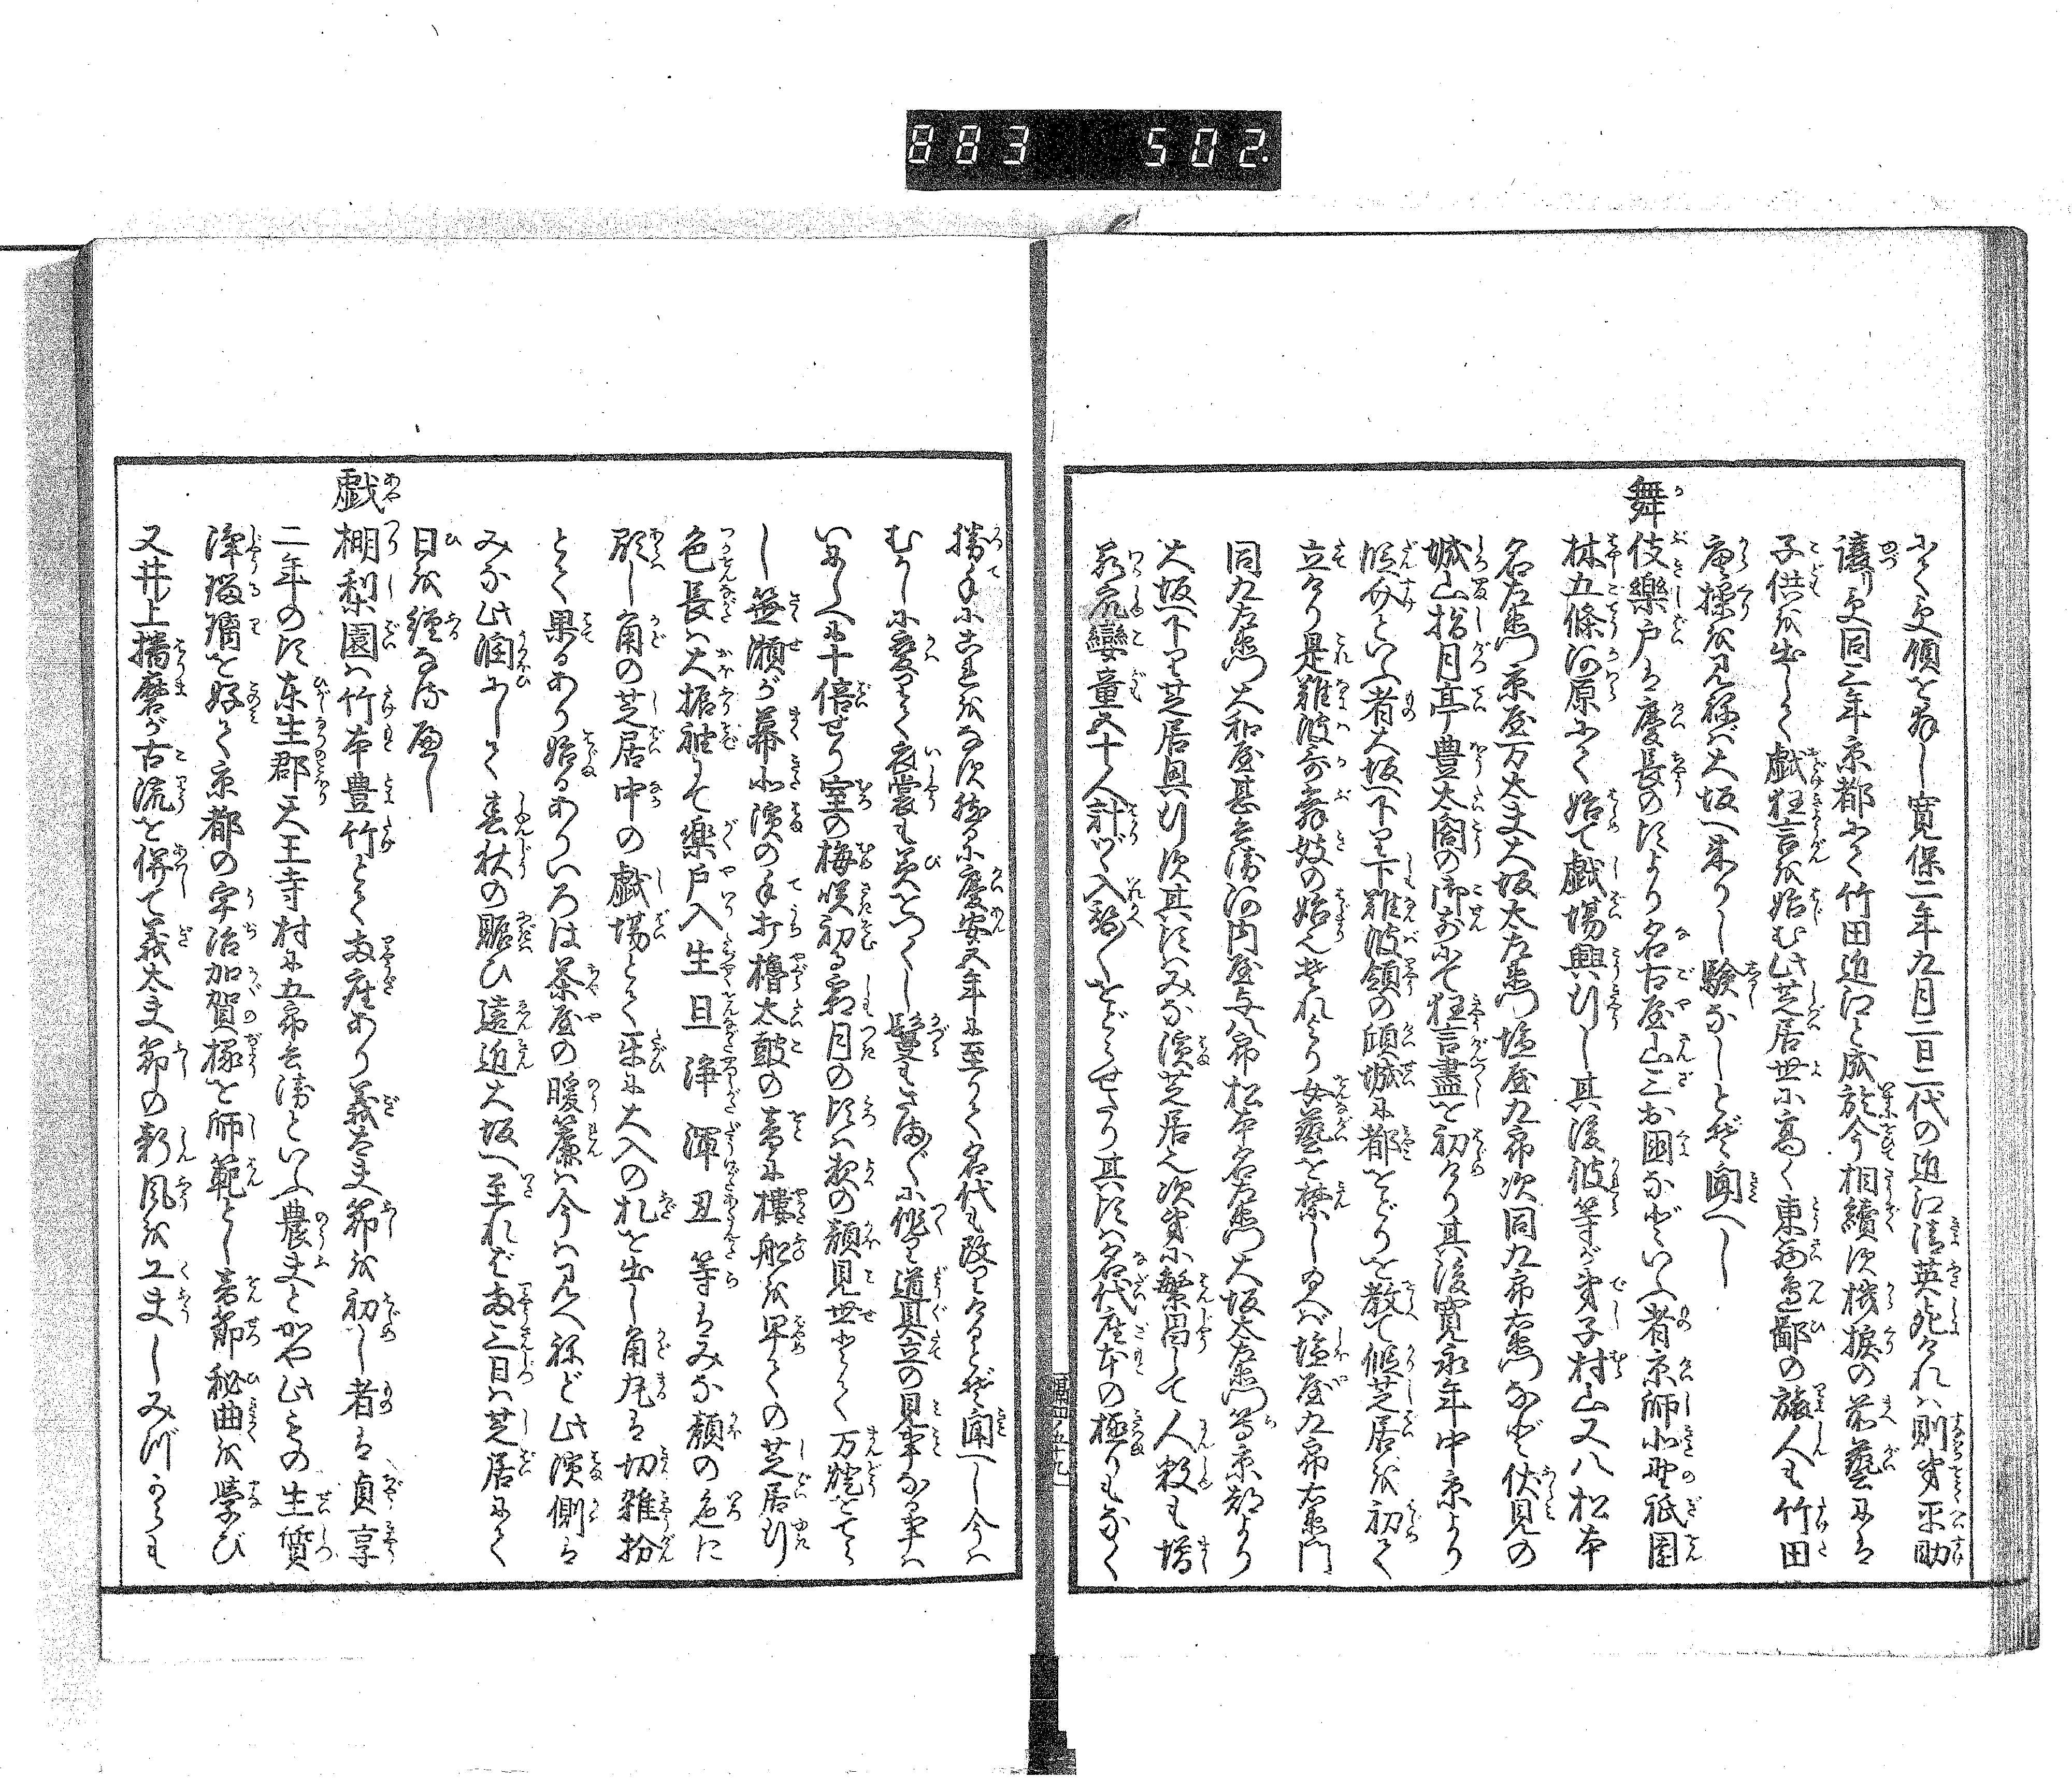 883 502
にて受領を拜し寛保二年九月二日二代の近江清英死けれハ則弟平助
譲り受同三年京都にて竹田近江と成於今相續す機捩の前藝には
子供を出して戯狂言を始む此芝居世に高く東西邊鄙の旅人も竹田
唐操を見ねば大坂へ来りし験なしとぞ聞へし
舞伎樂戸は慶長の頃より名古屋山三お国などいふ者京師北野祇園
林五條河原にて始て戯場興行し其後彼等が弟子村山又八松本
名左衛門京屋万太夫大坂太左衛門塩屋九郎次同九郎右衛門など伏見の
城山指月亭豊太閤の御前にて狂言盡を初けり其後寛永年中京より
といふ者大坂へ下り下難波領の傾城に都をどりを教て假芝居を初て
立けり是難波哥舞妓の始也それより女藝を禁しゆへ塩屋九郎右衛門
同九左衛門大和屋甚兵衛河内屋与八郎松本名左衛門大坂太左衛門等京都より
大坂へ下りて芝居興行す其頃ハみな濱芝居也次第に繁昌して人数も増
孌童五十人計づゝ入替〳〵をどらせたり其頃ハ名代座本の極りもなく
勝手に是をなす然るに慶安五年に至りて名代も改りけるとぞ聞へし今ハ
むかしに変りて衣裳も美をつくし鬘もさまざまに作り道具立の見事なる事ハ
いにしへに十倍せり室の梅咲初る霜月の頃ハ夜の顔見世とて万燈をてら
し笹瀬が幕北濱の手打櫓太皷の音に樓船を早めての芝居行
色長ハ大振袖にて樂戸入生旦浄渾丑等もみな顔の色に
顕し角の芝居中の戯場とて木戸に大入の札を出し角丸は切雜扮
とて果るあり始るありいろは茶屋の暖簾ハ今ハ見へねど此濱側は
みな此潤にして春秋の賑ひ遠近大坂へ至れば両三日ハ芝居にて
日を經るなるべし
戯棚梨園ハ竹本豊竹とて両座あり義太夫節を初し者は貞享
二年の頃東生郡天王寺村に五郎兵衛といふ農夫とかや此もの生質
浄瑠璃を好て京都の宇治加賀掾を師範とし音節秘曲を學び
又井上播磨が古流を併て義太夫節の新風を工夫しみづからも